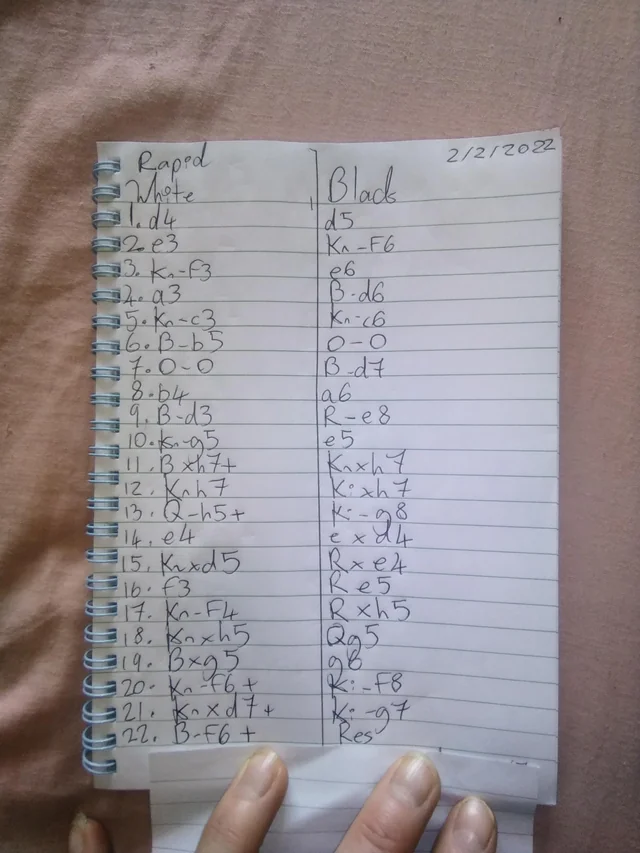 Raped 2/2/2022
White Black
1. d4 d5
2. e3 Kn-F6
3. Kn-F3 e6
2. a3 B-d6
5. Kn-c3 Kn-c6
6. B-b5 0-0
7. 0-0 B-d7
8. b4 a6
9. B-d3 R-e8
10. Kn-g5 e5
11. Bxh7+ Knxh7
12. Knh7 Ki xh7
13. Q-h5+ Ki-g8
14. e4 exd4
15. Knxd5 Rxe4
16. f3 Re5
17. Kn-F4 Rxh5
18. Knxh5 Qg5
19. Bxg5 g6
20. Kn-F6+ Ki-F8
21. Knxd7+ Ki-g7
22. B-F6+ Res